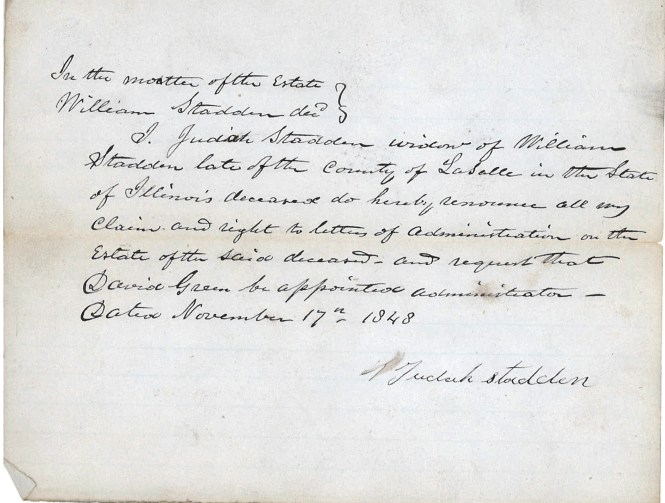 In the matter of the Estate
William Stadden decd
I. Judah Stadden widow of William
Stadden late of the County of LaSalle in the State
of Illinois deceased do hereby renounce all my
Claim and right to letters of administration on the
Estate of the said deceased - and request that
David Green be appointed administrator -
Dated November 17th 1848
Judah Stadden